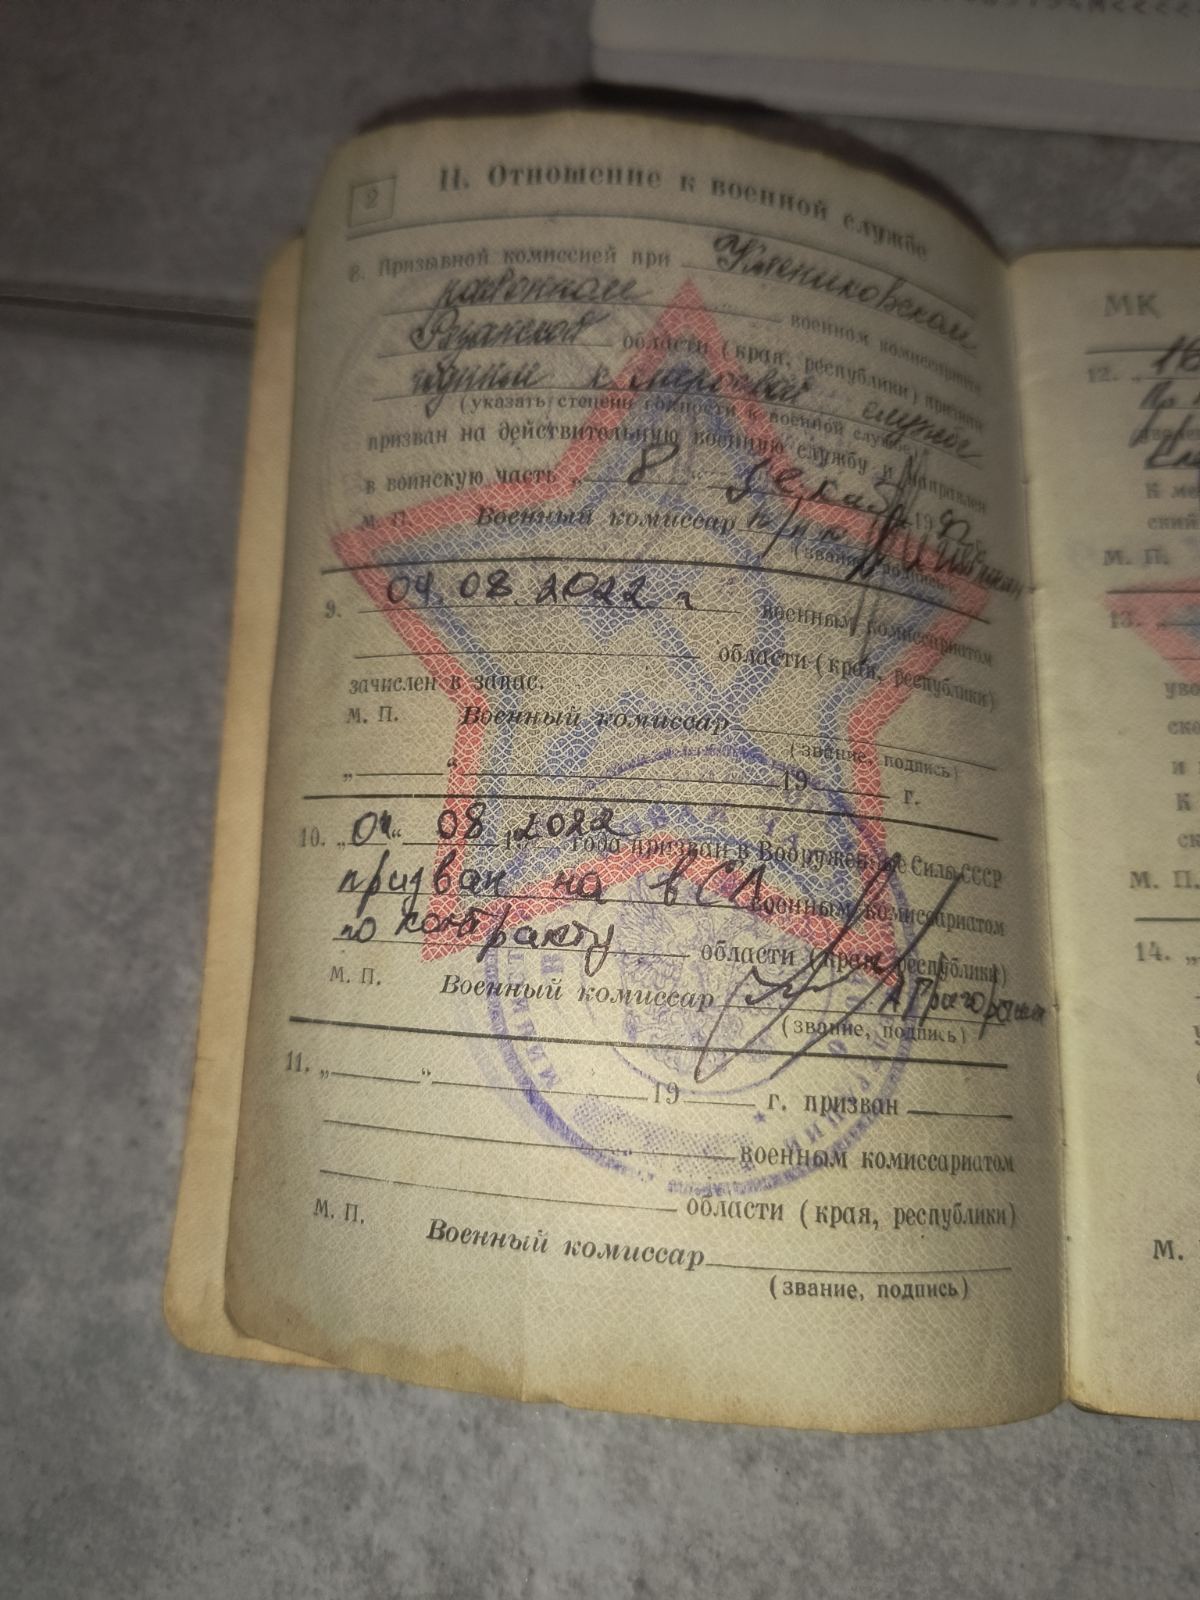 2
II. Отношение к военной службе
8. Призывной комиссией при
районном военном комиссариате
Рязанской области (края, республики) признан
годный к строевой службе
(указать степень годности к военной службе)
призван на действительную военную службу и направлен
в воинскую часть „ 8 “ декабр 19
М. П. Военный комиссар п/п-к
(звание, подпись)
9. 04.08.2022 г военным комиссариатом
области (края, республики)
зачислен в запас.
М. П. Военный комиссар
(звание, подпись)
„ “ 19 г.
10. „ 04 “ 08 2022 года призван в Вооруженные Силы СССР
призван на военным комиссариатом
по контракту области (края, республики)
М. П. Военный комиссар
(звание, подпись)
11. „ “ 19 г. призван
военным комиссариатом
области (края, республики)
М. П. Военный комиссар
(звание, подпись)
МК
12. „
К м
ский
М. П.
13. „
уво
ско
и
К
ск
М. П.
14. „
М.